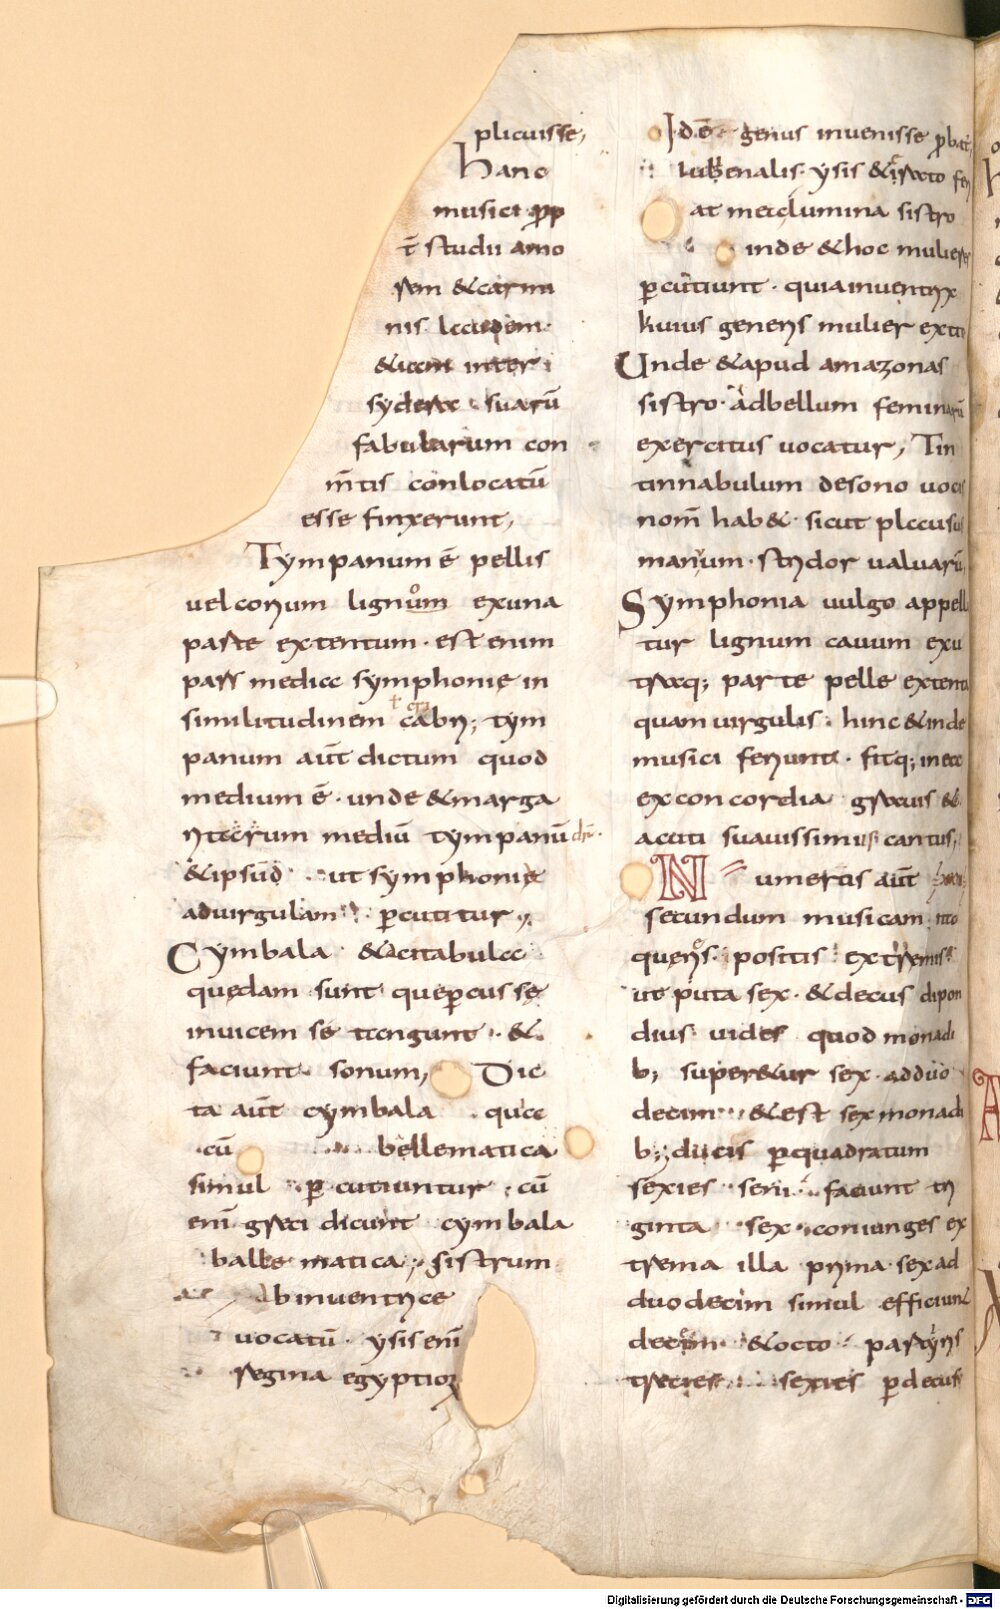 plicuisse,
hanc
musici ꝓp
t̄ studii amo
rem & carmi
nis laudem.
& iam inter
sydera suarū
fabularum con
m̄tis conlocatū
esse finxerunt,
Tympanum ē pellis
uel corium lignum ex una
parte extentum. est enim
pars mediae symphonię in
similitudinem cabri; tym
panum aūt dictum quod
medium ē. unde & marga
ritarum mediū tympanū
& ipsud ut symphonię
ad uirgulam ꝑcutitur
Cymbala & acitabula
quędam sunt quę ꝑcussę
inuicem se tangunt &
faciunt sonum, Dic
ta aūt cymbala quae
cū bellematica
simul ꝑcutiuntur cū
enī greci dicunt cymbala
balle matica; sistrum
ab inuentrice
uocatū. ysis enī
regina egyptioꝝ
Idē genus inuenisse ꝓbat
Iubenalis. ysis &
at mea lumina sistro
inde & hoc mulieres
ꝑcutiunt. quia inuentrix
huius generis mulier
Unde & apud amazonas
sistro ad bellum feminarū
exercitus uocatur, Tin
tinnabulum de sono uocis
nom̄ hab& sicut plausus
manuum. stridor ualuarū
Symphonia uulgo appella
tur lignum cauum ex u
traq; parte pelle extenta
quam uirgulis hinc & inde
musici feriunt. fitq; in ea
ex concordia grauis &
acuti suauissimus cantus,
Numeros aūt
secundum musicam ita
queris. positis extremis
ut puta sex. & decus dipon
dius. uides quod monadi
b; super&ur sex. ad duo
decim & est sex monadi
b; ducis ꝑ quadratum
sexies seni faciunt tri
ginta sex. coniunges ex
trema illa prima sex ad
duodecim simul efficiunt
decem & octo partiris
sexies ꝑ decus